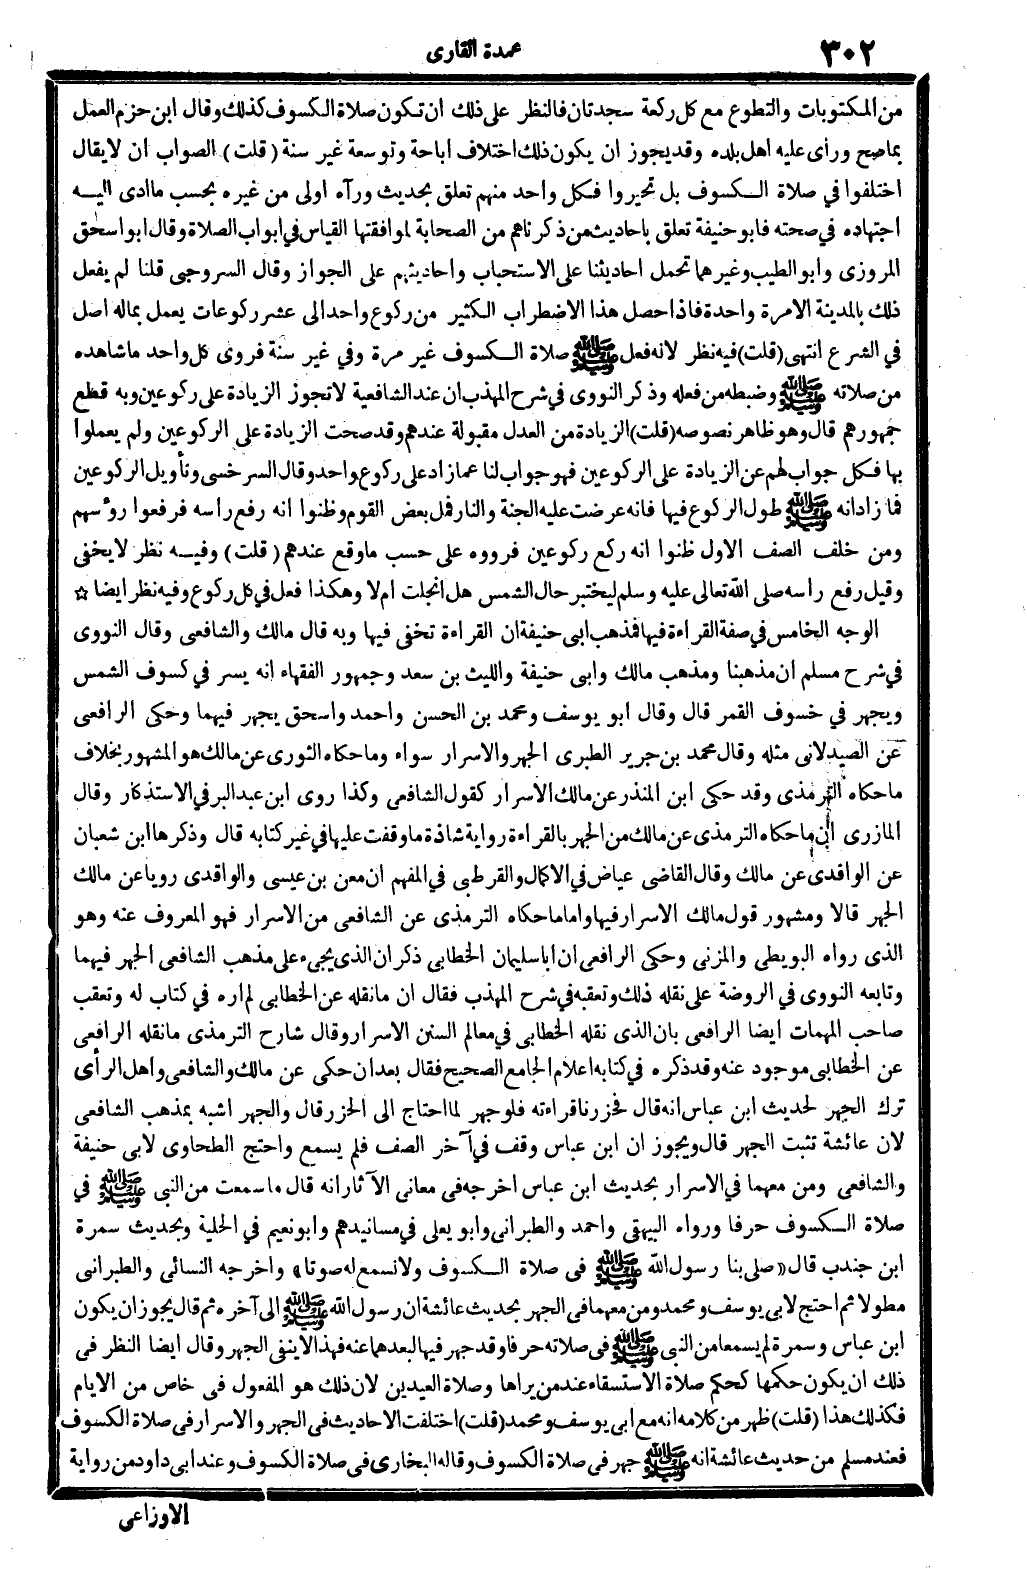 ٣٠٢
عمدة القارى
من المكتوبات والتطوع مع كل ركعة سجدتان فالنظر على ذلك ان تكون صلاة الكسوف كذلك وقال ابن حزم العمل
بماصح ورأى عليه اهل بلده وقد يجوز ان يكون ذلك اختلاف اباحة وتوسعة غير سنة ( قلت ) الصواب ان لا يقال
اختلفوا في صلاة الكسوف بل تحيروا فكل واحد منهم تعلق بحديث ورآه اولى من غيره بحسب ما ادى اليه
اجتهاده في صحته فابو حنيفة تعلق باحاديث من ذكرناهم من الصحابة لموافقتها القياس في ابواب الصلاة وقال ابو اسحق
المروزى وابو الطيب وغيرهما تحمل احاديثنا على الاستحباب واحاديثهم على الجواز وقال السروجى قلنا لم يفعل
ذلك بالمدينة الامرة واحدة فاذا حصل هذا الاضطراب الكثير من ركوع واحد الى عشر ركوعات يعمل بماله اصل
في الشرع انتهى (قلت) فيه نظر لانه فعل ﷺ صلاة الكسوف غير مرة وفي غير سنة فروى كل واحد ماشاهده
من صلاته ﷺ وضبطه من فعله وذكر النووى في شرح المهذب ان عند الشافعية لاتجوز الزيادة على ركوعين وبه قطع
جمهورهم قال وهو ظاهر نصوصه (قلت) الزيادة من العدل مقبولة عندهم وقد صحت الزيادة على الركوعين ولم يعملوا
بها فكل جواب لهم عن الزيادة على الركوعين فهو جواب لنا عما زاد على ركوع واحد وقال السرخسى وتأويل الركوعين
فما زاد انه ﷺ طول الركوع فيها فانه عرضت عليه الجنة والنار فمل بعض القوم وظنوا انه رفع راسه فرفعوا رؤسهم
ومن خلف الصف الاول ظنوا انه ركع ركوعين فرووه على حسب ماوقع عندهم ( قلت ) وفيه نظر لا يخفى
وقيل رفع راسه صلى الله تعالى عليه وسلم ليختبر حال الشمس هل انجلت ام لا وهكذا فعل في كل ركوع وفيه نظر ايضا ☆
الوجه الخامس في صفة القراءة فيها فمذهب ابى حنيفة ان القراءة تخفى فيها وبه قال مالك والشافعى وقال النووى
في شرح مسلم ان مذهبنا ومذهب مالك وابى حنيفة والليث بن سعد وجمهور الفقهاء انه يسر في كسوف الشمس
ويجهر في خسوف القمر قال وقال ابو يوسف ومحمد بن الحسن واحمد واسحق يجهر فيهما وحكى الرافعى
عن الصيدلانى مثله وقال محمد بن جرير الطبرى الجهر والاسرار سواء وماحكاه الثورى عن مالك هو المشهور بخلاف
ماحكاه الترمذى وقد حكى ابن المنذر عن مالك الاسرار كقول الشافعى وكذا روى ابن عبد البر في الاستذكار وقال
المازرى ان ماحكاه الترمذى عن مالك من الجهر بالقراءة رواية شاذة ماوقفت عليها في غير كتابه قال وذكرها ابن شعبان
عن الواقدى عن مالك وقال القاضى عياض في الاكمال والقرطبى في المفهم ان معن بن عيسى والواقدى رويا عن مالك
الجهر قالا ومشهور قول مالك الاسرار فيها واما ماحكاه الترمذى عن الشافعى من الاسرار فهو المعروف عنه وهو
الذى رواه البويطى والمزنى وحكى الرافعى ان ابا سليمان الخطابى ذكر ان الذى يجىء على مذهب الشافعى الجهر فيهما
وتابعه النووى في الروضة على نقله ذلك وتعقبه في شرح المهذب فقال ان مانقله عن الخطابى لم اره في كتاب له وتعقب
صاحب المهمات ايضا الرافعى بان الذى نقله الخطابى في معالم السنن الاسرار وقال شارح الترمذى مانقله الرافعى
عن الخطابى موجود عنه وقد ذكره في كتابه اعلام الجامع الصحيح فقال بعد ان حكى عن مالك والشافعى واهل الرأى
ترك الجهر لحديث ابن عباس انه قال فحزرنا قراءته فلو جهر لما احتاج الى الحزر قال والجهر اشبه بمذهب الشافعى
لان عائشة تثبت الجهر قال ويجوز ان ابن عباس وقف في آخر الصف فلم يسمع واحتج الطحاوى لابى حنيفة
والشافعى ومن معهما في الاسرار بحديث ابن عباس اخرجه فى معانى الآثار انه قال ماسمعت من النبى ﷺ في
صلاة الكسوف حرفا ورواه البيهقى واحمد والطبرانى وابو يعلى في مسانيدهم وابو نعيم في الحلية وبحديث سمرة
ابن جندب قال «صلى بنا رسول الله ﷺ فى صلاة الكسوف ولانسمع له صوتا» واخرجه النسائى والطبرانى
مطولا ثم احتج لابى يوسف ومحمد ومن معهما فى الجهر بحديث عائشة ان رسول الله ﷺ الى آخره ثم قال يجوز ان يكون
ابن عباس وسمرة لم يسمعا من النبى ﷺ فى صلاته حرفا وقد جهر فيها لبعدهما عنه فهذا لا ينفى الجهر وقال ايضا النظر فى
ذلك ان يكون حكمها كحكم صلاة الاستسقاء عند من يراها وصلاة العيدين لان ذلك هو المفعول فى خاص من الايام
فكذلك هذا (قلت) ظهر من كلامه انه مع ابى يوسف ومحمد (قلت) اختلفت الاحاديث فى الجهر والاسرار فى صلاة الكسوف
فعند مسلم من حديث عائشة انه ﷺ جهر فى صلاة الكسوف وقاله البخارى فى صلاة الكسوف وعند ابى داود من رواية
الاوزاعى